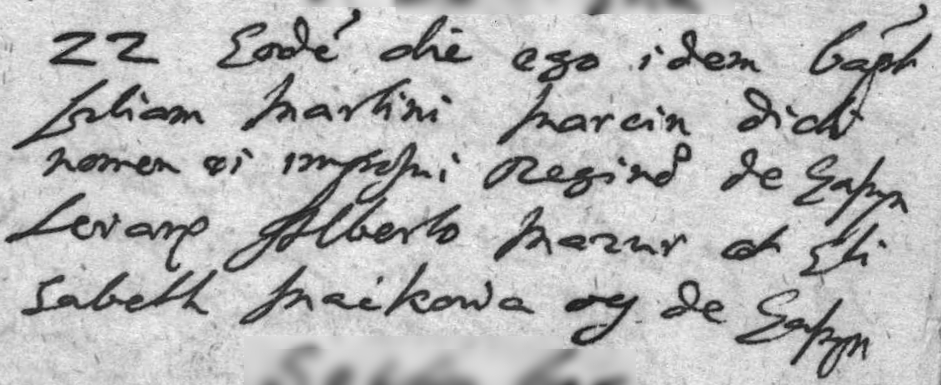 22 Eodē die ego idem bapt
filiam Martini Marcin dicti
nomen ei imposui Regina de
Levare Alberto Mazur et Eli
sabeth Maćkowa de